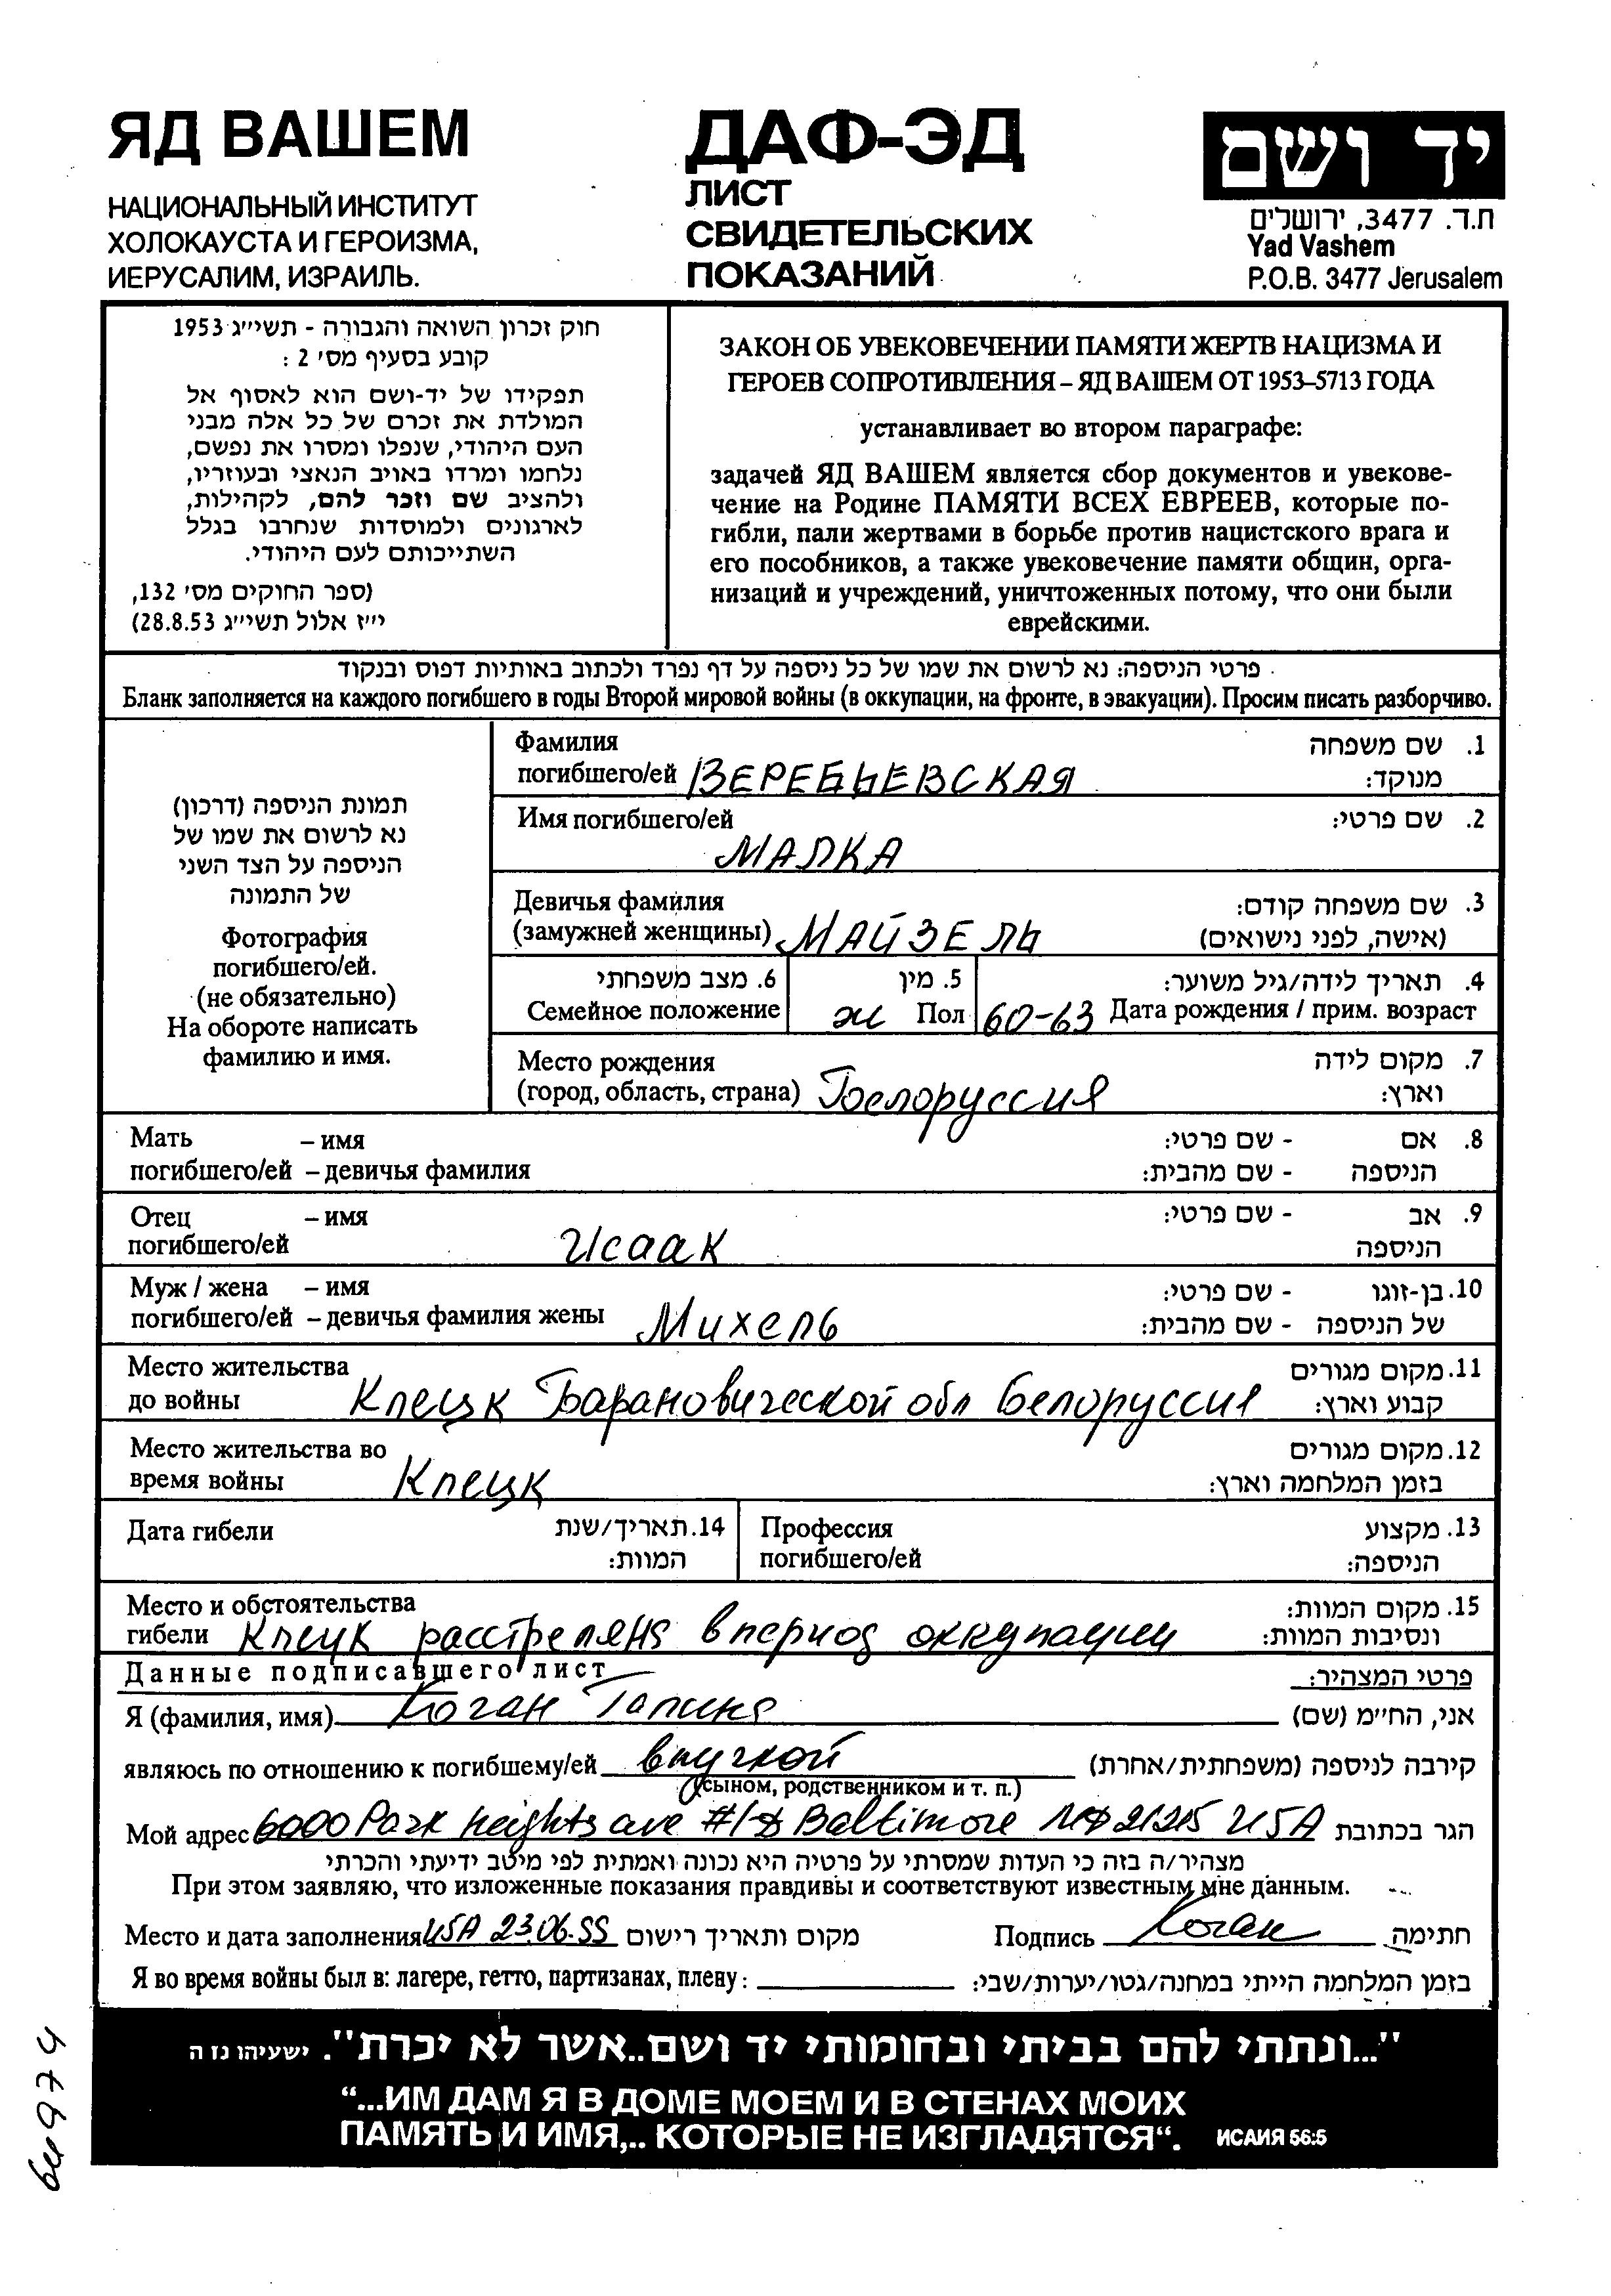 ЯД ВАШЕМ
НАЦИОНАЛЬНЫЙ ИНСТИТУТ
ХОЛОКАУСТА И ГЕРОИЗМА,
ИЕРУСАЛИМ, ИЗРАИЛЬ.
ДАФ-ЭД
ЛИСТ
СВИДЕТЕЛЬСКИХ
ПОКАЗАНИЙ
יד ושם
ת.ד. 3477, ירושלים
Yad Vashem
P.O.B. 3477 Jerusalem
חוק זכרון השואה והגבורה - תשי"ג 1953
קובע בסעיף מס' 2 :
תפקידו של יד-ושם הוא לאסוף אל
המולדת את זכרם של כל אלה מבני
העם היהודי, שנפלו ומסרו את נפשם,
נלחמו ומרדו באויב הנאצי ובעוזריו,
ולהציב שם וזכר להם, לקהילות,
לארגונים ולמוסדות שנחרבו בגלל
השתייכותם לעם היהודי.
(ספר החוקים מס' 132,
י"ז אלול תשי"ג 28.8.53)
ЗАКОН ОБ УВЕКОВЕЧЕНИИ ПАМЯТИ ЖЕРТВ НАЦИЗМА И
ГЕРОЕВ СОПРОТИВЛЕНИЯ – ЯД ВАШЕМ ОТ 1953–5713 ГОДА
устанавливает во втором параграфе:
задачей ЯД ВАШЕМ является сбор документов и увекове-
чение на Родине ПАМЯТИ ВСЕХ ЕВРЕЕВ, которые по-
гибли, пали жертвами в борьбе против нацистского врага и
его пособников, а также увековечение памяти общин, орга-
низаций и учреждений, уничтоженных потому, что они были
еврейскими.
פרטי הניספה: נא לרשום את שמו של כל ניספה על דף נפרד ולכתוב באותיות דפוס ובנקוד
Бланк заполняется на каждого погибшего в годы Второй мировой войны (в оккупации, на фронте, в эвакуации). Просим писать разборчиво.
תמונת הניספה (דרכון)
נא לרשום את שמו של
הניספה על הצד השני
של התמונה
Фотография
погибшего/ей.
(не обязательно)
На обороте написать
фамилию и имя.
Фамилия 1. שם משפחה
погибшего/ей ВЕРЕБЬЕВСКАЯ מנוקד:
Имя погибшего/ей 2. שם פרטי:
МАЛКА
Девичья фамилия 3. שם משפחה קודם:
(замужней женщины) МАЙЗЕЛЬ (אישה, לפני נישואים)
6. מצב משפחתי 5. מין 4. תאריך לידה/גיל משוער:
Семейное положение ж Пол 60-63 Дата рождения / прим. возраст
Место рождения 7. מקום לידה
(город, область, страна) Белоруссия וארץ:
Мать – имя 8. אם - שם פרטי:
погибшего/ей – девичья фамилия הניספה - שם מהבית:
Отец – имя 9. אב - שם פרטי:
погибшего/ей Исаак הניספה
Муж / жена – имя 10. בן-זוגו - שם פרטי:
погибшего/ей – девичья фамилия жены Михель של הניספה - שם מהבית:
Место жительства 11. מקום מגורים
до войны Клецк Барановической обл Белоруссия קבוע וארץ:
Место жительства во 12. מקום מגורים
время войны Клецк בזמן המלחמה וארץ:
Дата гибели 14. תאריך/שנת Профессия 13. מקצוע
המוות: погибшего/ей הניספה:
Место и обстоятельства 15. מקום המוות:
гибели Клецк расстреляна в период оккупации ונסיבות המוות:
Данные подписавшего лист פרטי המצהיר:
Я (фамилия, имя) Коган Галина אני, הח"מ (שם)
являюсь по отношению к погибшему/ей внучкой קירבה לניספה (משפחתית/אחרת)
(сыном, родственником и т. п.)
Мой адрес 6000 Park heights ave #1D Baltimore MD 21215 USA הגר בכתובת
מצהיר/ה בזה כי העדות שמסרתי על פרטיה היא נכונה ואמתית לפי מיטב ידיעתי והכרתי
При этом заявляю, что изложенные показания правдивы и соответствуют известным мне данным.
Место и дата заполнения USA 23.06.99 מקום ותאריך רישום Подпись Коган חתימה
Я во время войны был в: лагере, гетто, партизанах, плену: בזמן המלחמה הייתי במחנה/גטו/יערות/שבי:
"...ונתתי להם בביתי ובחומותי יד ושם..אשר לא יכרת". ישעיהו נז ה
“...ИМ ДАМ Я В ДОМЕ МОЕМ И В СТЕНАХ МОИХ
ПАМЯТЬ И ИМЯ,.. КОТОРЫЕ НЕ ИЗГЛАДЯТСЯ“. ИСАИЯ 56:5